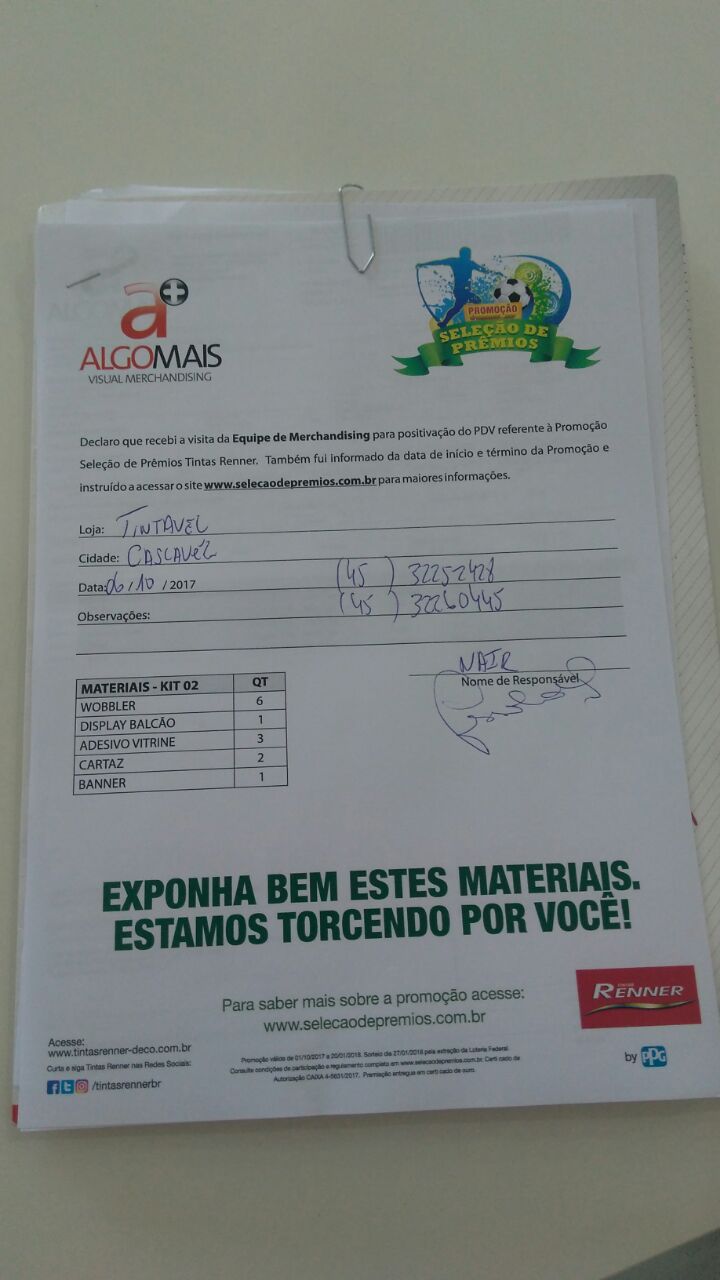 a+
ALGOMAIS
VISUAL MERCHANDISING
PROMOÇÃO
SELEÇÃO DE
PRÊMIOS
Declaro que recebi a visita da Equipe de Merchandising para positivação do PDV referente à Promoção
Seleção de Prêmios Tintas Renner. Também fui informado da data de início e término da Promoção e
instruído a acessar o site www.selecaodepremios.com.br para maiores informações.
Loja: TINTAVEL
Cidade: CASCAVEL
Data: 06/10 / 2017 (45 ) 32252428
Observações: (45 ) 32260445
NAIR
Nome de Responsável
MATERIAIS - KIT 02 QT
WOBBLER 6
DISPLAY BALCÃO 1
ADESIVO VITRINE 3
CARTAZ 2
BANNER 1
EXPONHA BEM ESTES MATERIAIS.
ESTAMOS TORCENDO POR VOCÊ!
Para saber mais sobre a promoção acesse:
www.selecaodepremios.com.br
TINTAS
RENNER
by PPG
Acesse:
www.tintasrenner-deco.com.br
Curta e siga Tintas Renner nas Redes Sociais:
/tintasrennerbr
Promoção válida de 01/10/2017 a 20/01/2018. Sorteio de 27/01/2018 pela extração da Loteria Federal.
Consulte condições de participação e regulamento completo em www.selecaodepremios.com.br. Certi cado de
Autorização CAIXA 4-5631/2017. Premiação entregue em certi cado de ouro.